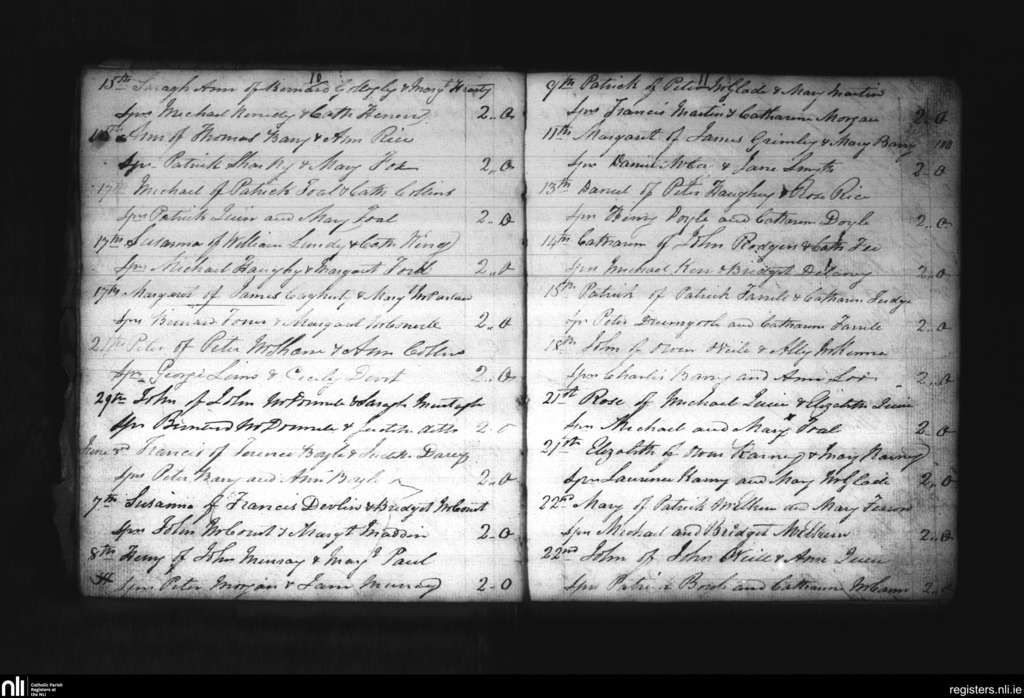 10
15th Saragh Ann of Bernard & Mary
Sprs Michael & Cath
Ann of Thomas Barry & Ann Rice
Sprs Patrick Sharky & Mary Fox 2..0
17th Michael of Patrick Toal & Cath Collins
Sprs Patrick Quin and Mary Toal 2..0
17th Susanna of William Lundy & Cath King
Sprs Michael Haughy & Margaret Ford 2..0
17th Margaret of James & Mary McParlan
Sprs Bernard & Margaret 2..0
Peter of Peter McShane & Ann Collins
Sprs George & Cecily 2..0
29th John of John McDonnell & Saragh Murtagh
Sprs Bernard McDonnell & Judith 2..0
June 3rd Francis of Terence Boyle & Judith Darcy
Sprs Peter Barry and Ann Boyle 2..0
7th Susanna of Francis Devlin & Bridget McCourt
Sprs John McCourt & Margt Maddin 2..0
8th Henry of John Murray & Mary Paul
Sprs Peter Morgan & Jane Murray 2..0
11
9th Patrick of Peter McGlade & Mary Martin
Sprs Francis Martin & Catharine Morgan 2..0
11th Margaret of James Grimley & Mary Barry
Sprs Daniel & Jane Smyth 2..0
13th Daniel of Peter Haughey & Rose Rice
Sprs Henry Doyle and Catharine Doyle 2..0
14th Catharine of John Rodgers & Cath Fee
Sprs Michael Kerr & Bridget Delany 2..0
15th Patrick of Patrick Farrell & Catharine Judge
Sprs Peter Drumgoole and Catharine Farrell 2..0
18th John of Owen O'Neile & Ally McKenna
Sprs Charles Barry and Ann 2..0
21st Rose of Michael Quin & Elizabeth Quin
Sprs Michael and Mary Toal 2..0
21st Elizabeth of Owen Karney & Mary Karney
Sprs Laurence Karney and Mary McGlade 2..0
22nd Mary of Patrick and Mary
Sprs Michael and Bridget 2..0
22nd John of John O'Neile & Ann Quin
Sprs Patrick and Catharine McCann 2..0
nli
Catholic Parish
Registers at
the NLI
registers.nli.ie